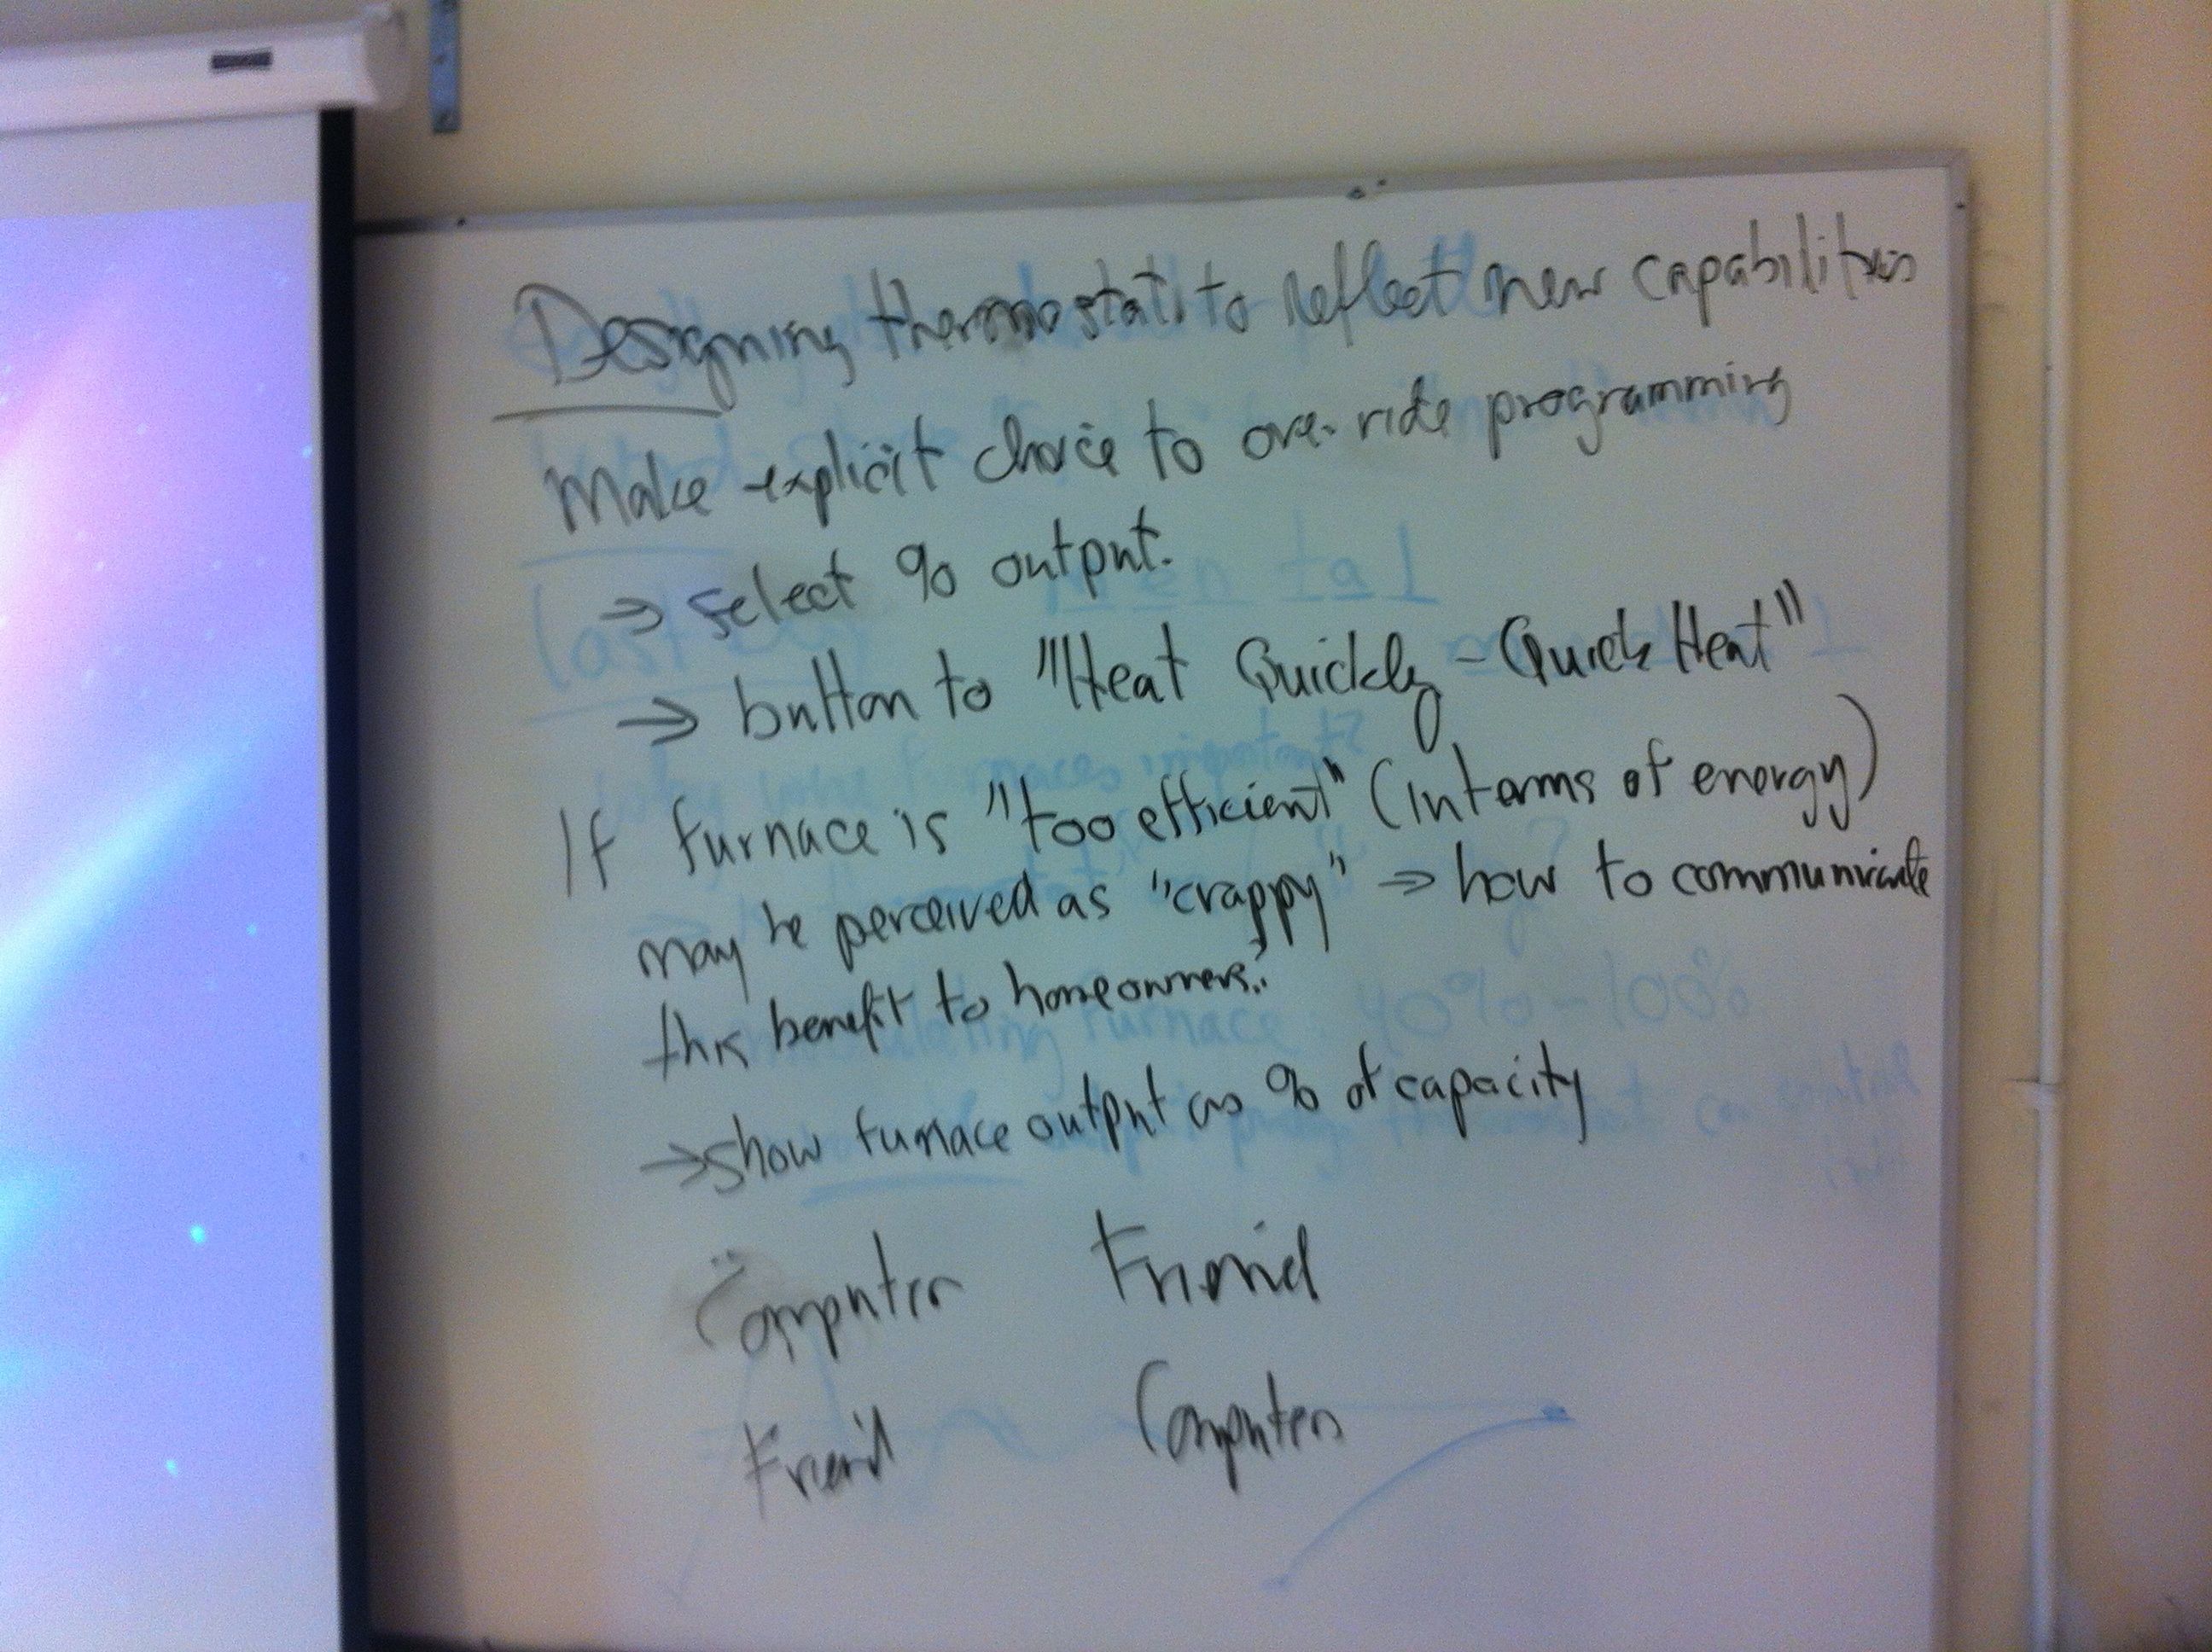 Designing thermostats to reflect new capabilities
Make explicit choice to over-ride programming
→ select % output.
→ button to "Heat Quickly - Quick Heat"
If furnace is "too efficient" (in terms of energy)
may be perceived as "crappy" → how to communicate
this benefit to homeowners?
→ show furnace output as % of capacity
Computer Friend
Friend Computer
furnace: 40% - 100%